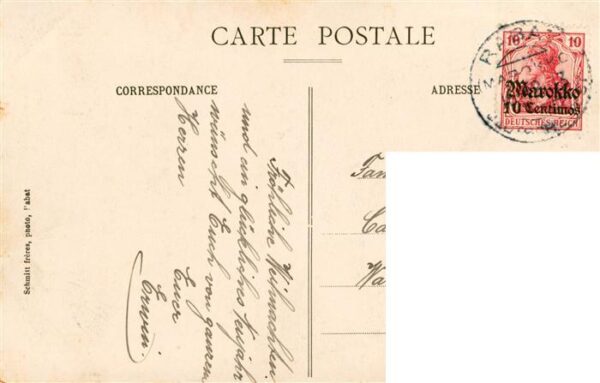 CARTE POSTALE
CORRESPONDANCE
ADRESSE
10 10
Marokko
10 Centimos
DEUTSCHES REICH
RABAT
MAROCCO
Fröhliche Weihnachten
und ein glückliches Neujahr
wünscht Euch von ganzem
Herzen
Euer
Erwin.
Fam
Ca
Wa
Schmitt frères, photo, l'abat